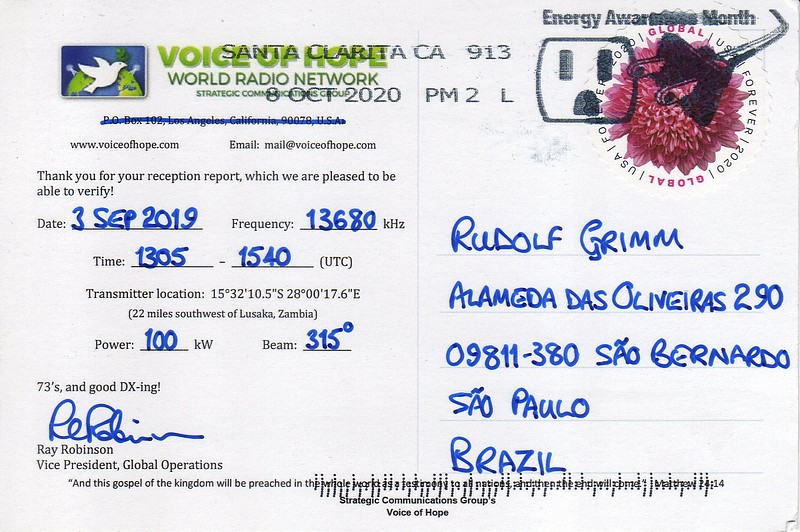 Energy Awareness Month
SANTA CLARITA CA 913
8 OCT 2020 PM 2 L
VOICE OF HOPE
WORLD RADIO NETWORK
STRATEGIC COMMUNICATIONS GROUP
P.O. Box 102, Los Angeles, California, 90078, U.S.A.
www.voiceofhope.com Email: mail@voiceofhope.com
GLOBAL | USA | FOREVER | 2020 | GLOBAL | USA | FOREVER | 2020 |
Thank you for your reception report, which we are pleased to be
able to verify!
Date: 3 SEP 2019 Frequency: 13680 kHz
Time: 1305 – 1540 (UTC)
Transmitter location: 15°32'10.5"S 28°00'17.6"E
(22 miles southwest of Lusaka, Zambia)
Power: 100 kW Beam: 315°
73's, and good DX-ing!
Ray Robinson
Vice President, Global Operations
RUDOLF GRIMM
ALAMEDA DAS OLIVEIRAS 290
09811-380 SÃO BERNARDO
SÃO PAULO
BRAZIL
"And this gospel of the kingdom will be preached in the whole world as a testimony to all nations, and then the end will come." Matthew 24:14
Strategic Communications Group's
Voice of Hope